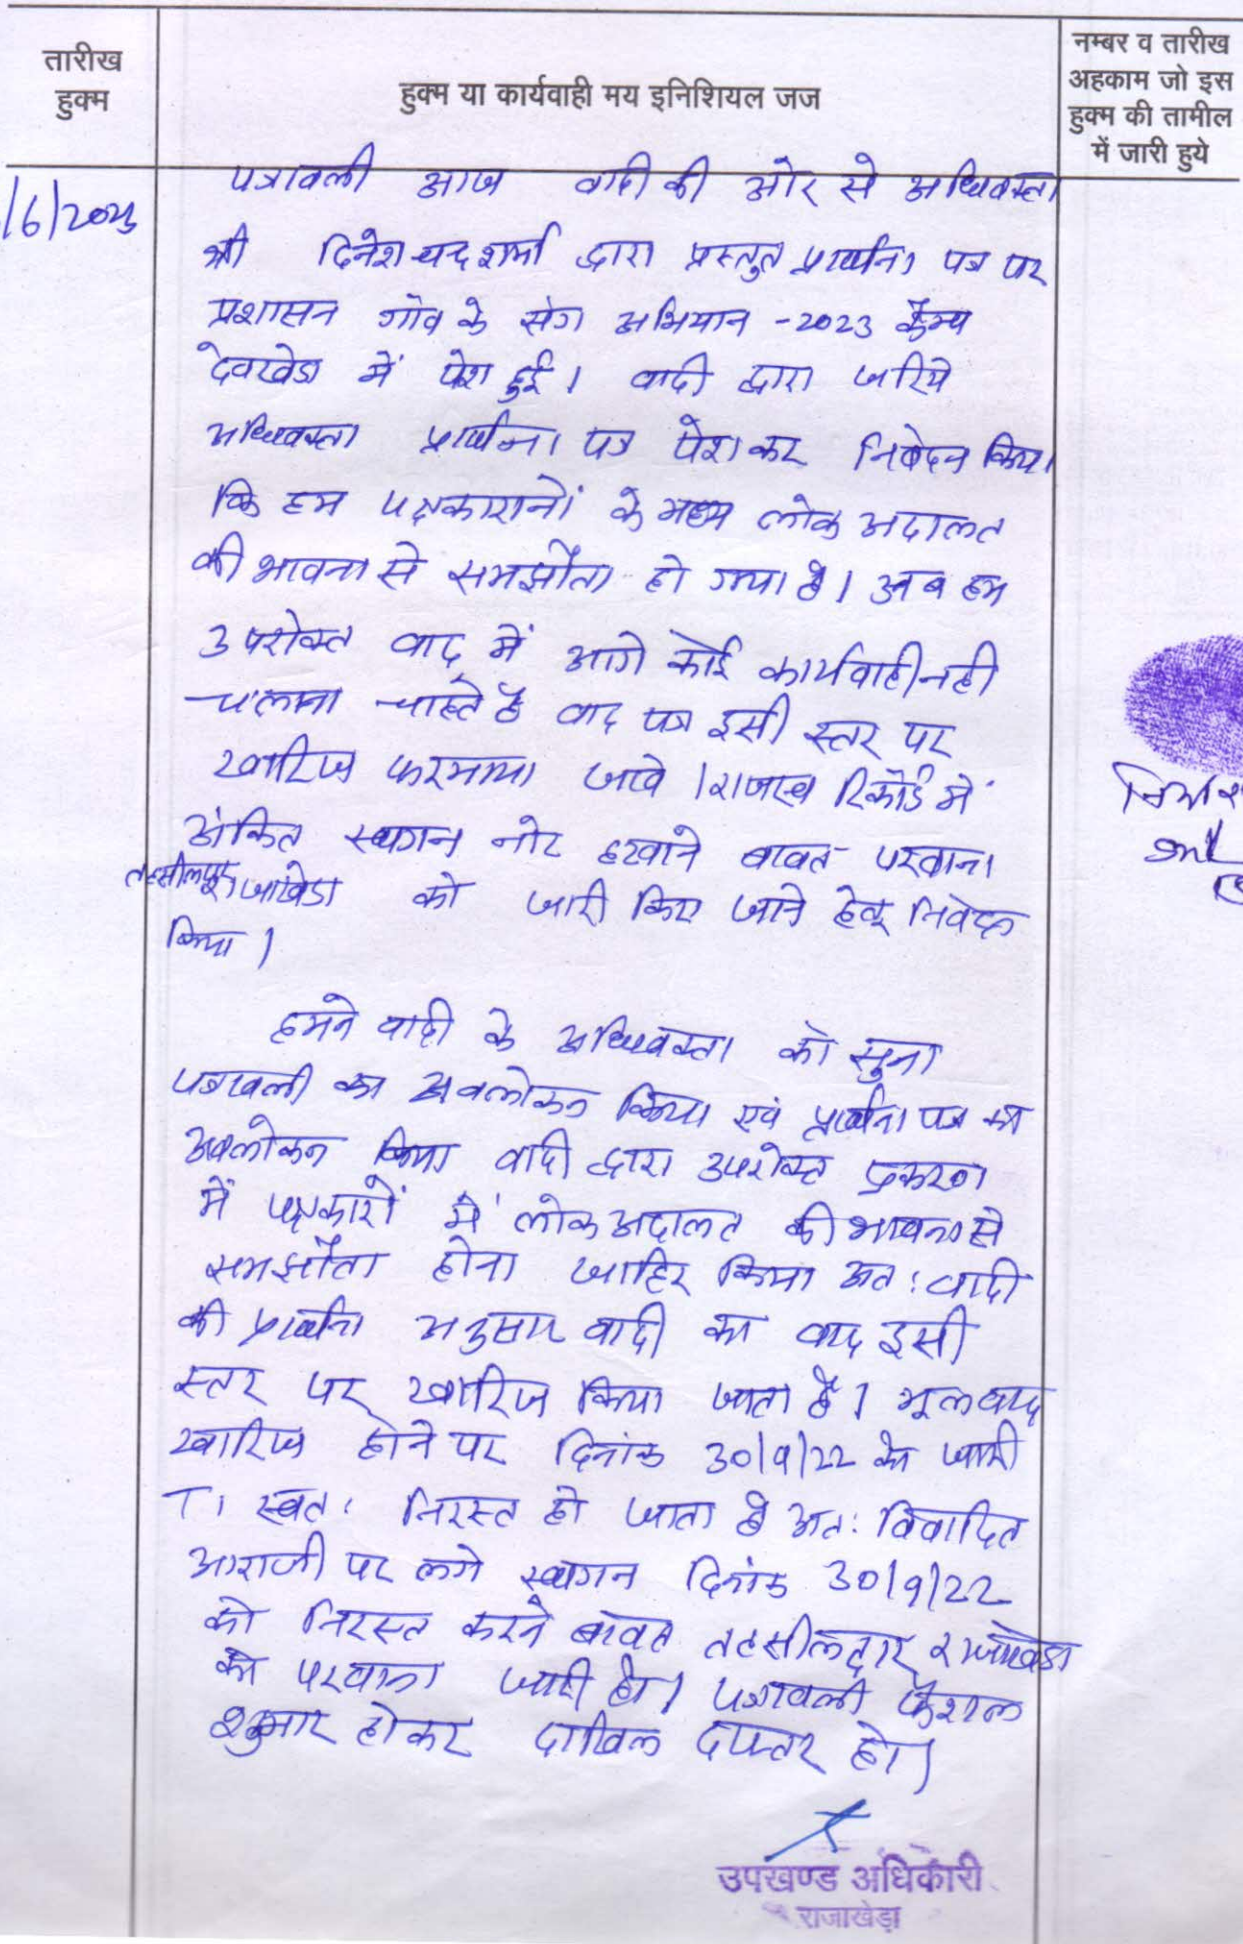 तारीख
हुक्म
हुक्म या कार्यवाही मय इनिशियल जज
नम्बर व तारीख
अहकाम जो इस
हुक्म की तामील
में जारी हुये
/6/2023
पत्रावली आज वादी की ओर से अधिवक्ता
श्री दिनेश चन्द शर्मा द्वारा प्रस्तुत प्रार्थना पत्र पर
प्रशासन गांव के संग अभियान -2023 कैम्प
देवखेडा में पेश हुई। वादी द्वारा जरिये
अधिवक्ता प्रार्थना पत्र पेश कर निवेदन किया
कि हम पक्षकारानों के मध्य लोक अदालत
की भावना से समझौता हो गया है। अब हम
उपरोक्त वाद में आगे कोई कार्यवाही नही
चलाना चाहते है वाद पत्र इसी स्तर पर
खारिज फरमाया जावे। राजस्व रिकॉर्ड में
अंकित स्थगन नोट हटवाने बावत परवाना
तहसीलदार राजाखेडा को जारी किए जाने हेतु निवेदन
किया।
हमने वादी के अधिवक्ता को सुना
पत्रावली का अवलोकन किया एवं प्रार्थना पत्र का
अवलोकन किया वादी द्वारा उपरोक्त प्रकरण
में पक्षकारों में लोक अदालत की भावना से
समझौता होना जाहिर किया अत: वादी
की प्रार्थना अनुसार वादी का वाद इसी
स्तर पर खारिज किया जाता है। मूल वाद
खारिज होने पर दिनांक 30/9/22 को जारी
TI स्वत: निरस्त हो जाता है अत: विवादित
आराजी पर लगे स्थगन दिनांक 30/9/22
को निरस्त करने बावत तहसीलदार राजाखेडा
को परवाना जारी हो। पत्रावली फैशल
शुमार होकर दाखिल दफ्तर हो।
उपखण्ड अधिकारी
राजाखेड़ा